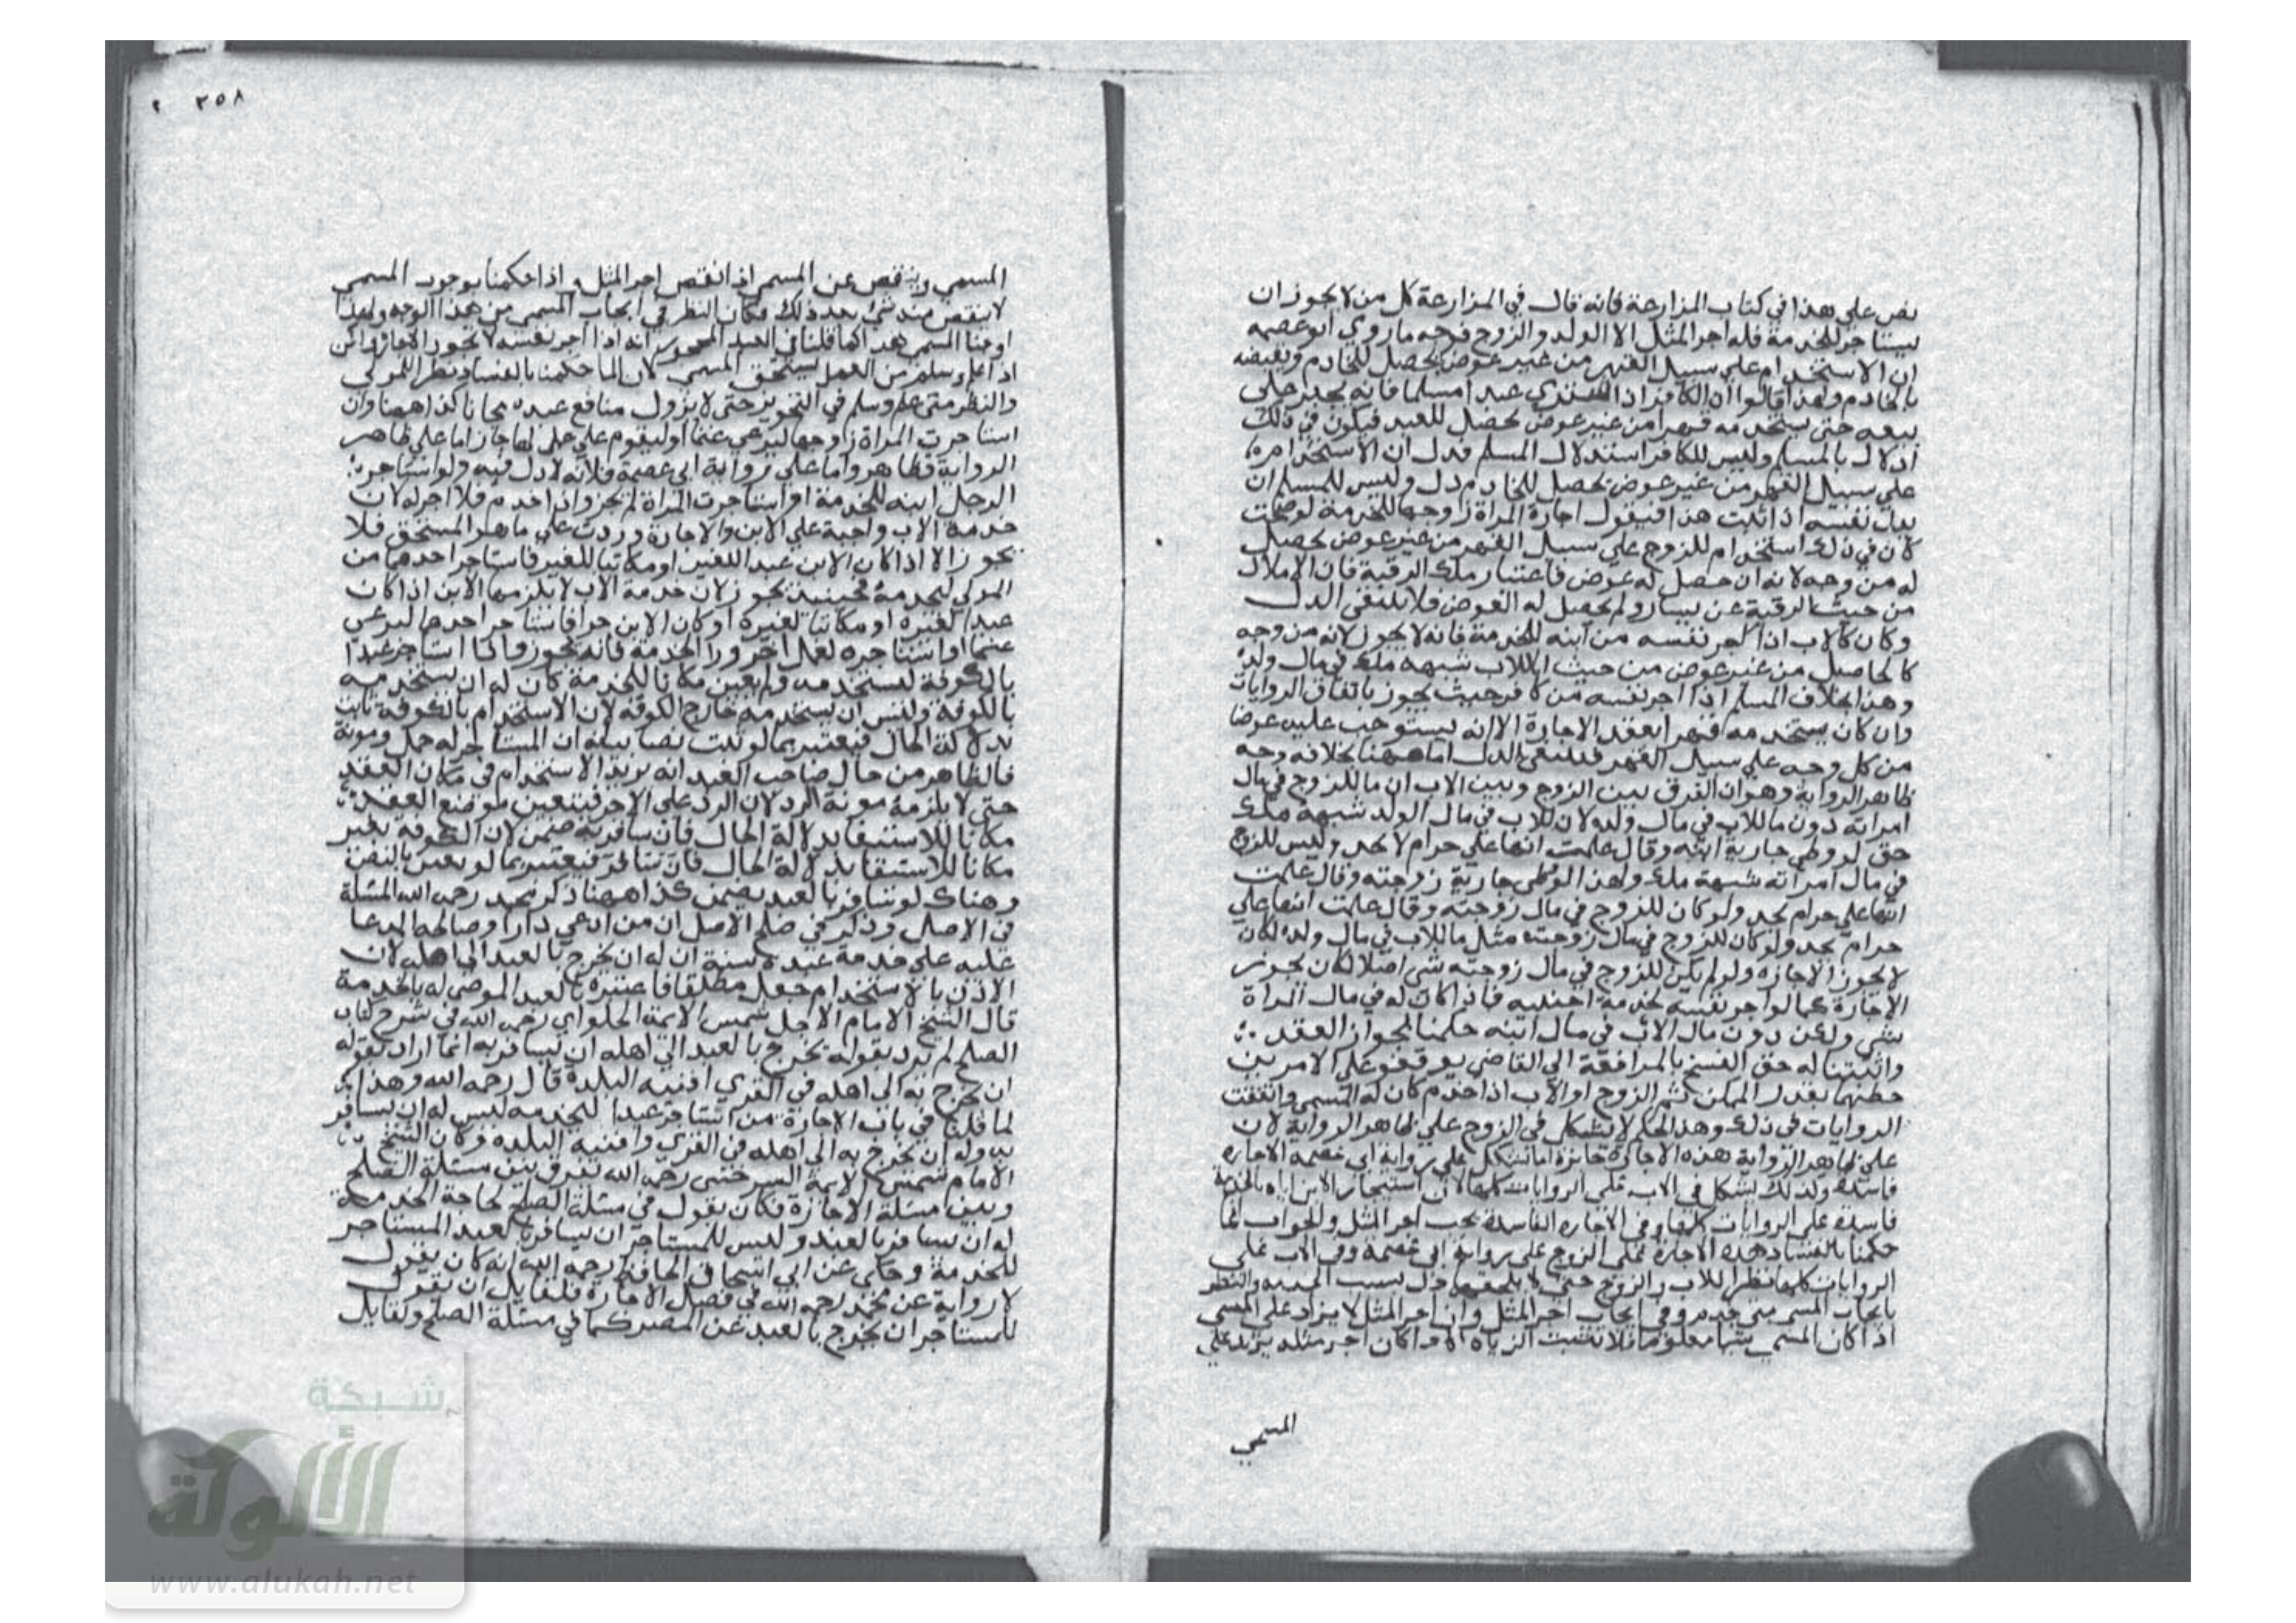 نص على هذا في كتاب المزارعة فانه قال في المزارعة كل من لا يجوز ان
يستاجر للخدمة فله اجر المثل الا الولد والزوج فوجه ما روي ابو عصمه
ان الاستخدام على سبيل القهر من غير عوض يحصل للخادم
بالخادم ولهذا قالوا ان الكافر اذا اشتري عبدا مسلما فانه يجبر على
بيعه حتى يستخدمه قهرا من غير عوض يحصل للعبد فيكون في ذلك
اذلال بالمسلم وليس للكافر استذلال المسلم فدل ان الاستخدام
على سبيل القهر من غير عوض يحصل للخادم ذل وليس للمسلم ان
يذل نفسه اذا ثبت هذا فنقول اجارة المراة زوجها للخدمة لو صحت
كان في ذلك استخدام للزوج على سبيل القهر من غير عوض يحصل
له من وجه لانه ان حصل له عوض فاعتبار ملك الرقبة فان الاملاك
من حيث الرقبة عن يسار ولم يحصل له العوض فلا ينتفي الذل
وكان كالاب اذا اجر نفسه من ابنه للخدمة فانه لا يجوز لانه من وجه
كالحاصل من غير عوض من حيث ان للاب شبهة ملك في مال ولده
وهذا بخلاف المسلم اذا اجر نفسه من كافر حيث يجوز باتفاق الروايات
وان كان يستخدمه قهرا بعقد الاجارة الا انه يستوجب عليه عوضا
من كل وجه على سبيل القهر فينتفي الذل اما ههنا بخلافه وجه
ظاهر الرواية وهو ان الفرق بين الزوج وبين الاب ان ما للزوج في مال
امراته دون ما للاب في مال ولده لان للاب في مال الولد شبهة ملك
حتى لو وطي جارية ابنه وقال علمت انها على حرام لا يحد وليس للزوج
في مال امراته شبهة ملك ولهذا لو وطى جارية زوجته وقال علمت
انها على حرام يحد ولو كان للزوج في مال زوجته وقال علمت انها على
حرام يحد ولو كان للزوج في مال زوجته مثل ما للاب في مال ولده لكان
لا يجوز الاجازه ولو لم يكن للزوج في مال زوجته شى اصلا لكان يجوز
الاجارة كما لو اجر نفسه لخدمة اجنبيه فاذا كان له في مال المراة
شي ولكن دون مال الاب في مال ابنه حكمنا بجواز العقد
واثبتنا له حق الفسخ بالمرافعة الى القاضي على الامرين
حظهما بقدر الممكن ثم الزوج او الاب اذا خدم كان له المسمى واتفقت
الروايات في ذلك وهذا الحكم لا يشكل في الزوج على ظاهر الرواية لان
على ظاهر الرواية هذه الاجارة جائزة اما يشكل على رواية ابي عصمة الاجاره
فاسدة وكذلك يشكل في الاب على الروايات كلها لان استيجار الابن اباه بالخدمة
فاسدة على الروايات كلها وفى الاجاره الفاسدة يجب اجر المثل والجواب لما
حكمنا بالفساد هذه الاجارة على الزوج على رواية ابي عصمة وفى الاب على
الروايات كلها نظرا للاب والزوج حتى لا يلحقهما ذل بسبب الخدمه والنظر
بايجاب المسمى متى خدم وفي ايجاب اجر المثل وان اجر المثل لا يزاد على المسمى
اذا كان المسمى شيا معلوما فلا تثبت الزياده اذا كان اجر مثله يزيد على
المسمي
٢٥٨
المسمي وينقص عن المسمى اذا انقص اجر المثل واذا حكمنا بوجوب المسمى
لا ينقص منه شئ بعد ذلك فكان النظر في ايجاب المسمى من هذا الوجه ولهذا
اوجبنا المسمى بعد كما قلنا في العبد المحجور انه اذا اجر نفسه لا تجوز الاجارة ولكن
اذا عمل وسلم من العمل يستحق المسمى لان انما حكمنا بالفساد نظرا للمولى
والنظر متى عمل وسلم في التجويز حتى لا يزول منافع عبده مجانا كذا ههنا وان
استاجرت المراة زوجها ليرعى غنما او ليقوم على عمل لها جاز اما على ظاهر
الرواية فظاهر واما على رواية ابي عصمة فلانه لا ذل فيه ولو استاجر
الرجل ابنه للخدمة او استاجرت المراة لم يجز واذا خدم فلا اجر له لان
خدمة الاب واجبة على الابن والاجارة وردت على ما هو المستحق فلا
يجوز الا اذا كان الابن عبدا للغير او مكاتبا للغير فاستاجر احدهما من
المولى ليخدمه فحينئذ يجوز لان خدمة الاب لا يلزمها الابن اذا كان
عبدا لغيره او مكاتبا لغيره او كان الابن حرا فاستاجر احدهما ليرعى
غنما او استاجره لعمل اخر وراء الخدمة فانه يجوز واذا استاجر عبدا
بالكوفة ليستخدمه ولم يعين مكانا للخدمة كان له ان يستخدمه
بالكوفة وليس ان يستخدمه خارج الكوفه لان الاستخدام بالكوفة ثابت
بدلالة الحال فيعتبر بما لو ثبت نصا بيانه ان المستاجر له حمل ومونة
فالظاهر من حال صاحب العبد انه يريد الاستخدام في مكان العقد
حتى لا يلزمه مونة الرد لان الرد على الاجر فيتعين موضع العقد
مكانا للاستيفا بدلالة الحال فان سافر به ضمن لان الكوفه بغير
مكانا للاستيفا بدلالة الحال فان سافر فيعتبر بما لو يعين بالنص
وهناك لو سافر بالعبد يضمن كذا ههنا ذكر محمد رحمه الله المسئلة
في الاصل وذكر في صلح الاصل ان من ادعي دارا وصالحه المدعا
عليه على خدمة عبده سنة ان له ان يخرج بالعبد الى اهله لان
الاذن بالاستخدام جعل مطلقا فاعتبره بالعبد الموصى له بالخدمة
قال الشيخ الامام الاجل شمس الايمة الحلواي رحمه الله في شرح كتاب
الصلح لم يرد بقوله يخرج بالعبد الى اهله ان يسافر به انما اراد بقوله
ان يخرج به الى اهله في القري افنيه البلدة قال رحمه الله وهذا
لما قلنا في باب الاجارة من استاجر عبدا للخدمه ليس له ان يسافر
به وله ان يخرج به الى اهله في القري وافنيه البلده وكان الشيخ
الامام شمس الايمة السرخسى رحمه الله يفرق بين مسئلة الصلح
وبين مسئلة الاجازة فكان يقول في مسئلة الصلح لحاجة الخدمة
له ان يسافر بالعبد وليس للمستاجر ان يسافر بالعبد المستاجر
للخدمة وحكي عن ابي اسحاق الحافظ رحمه الله انه كان يقول
لا رواية عن محمد رحمه الله في فصل الاجارة فلقايل ان يقول
للمستاجر ان يخرج بالعبد عن المصر كما في مسئلة الصلح ولقايل
شبكة
الألوكة
www.alukah.net